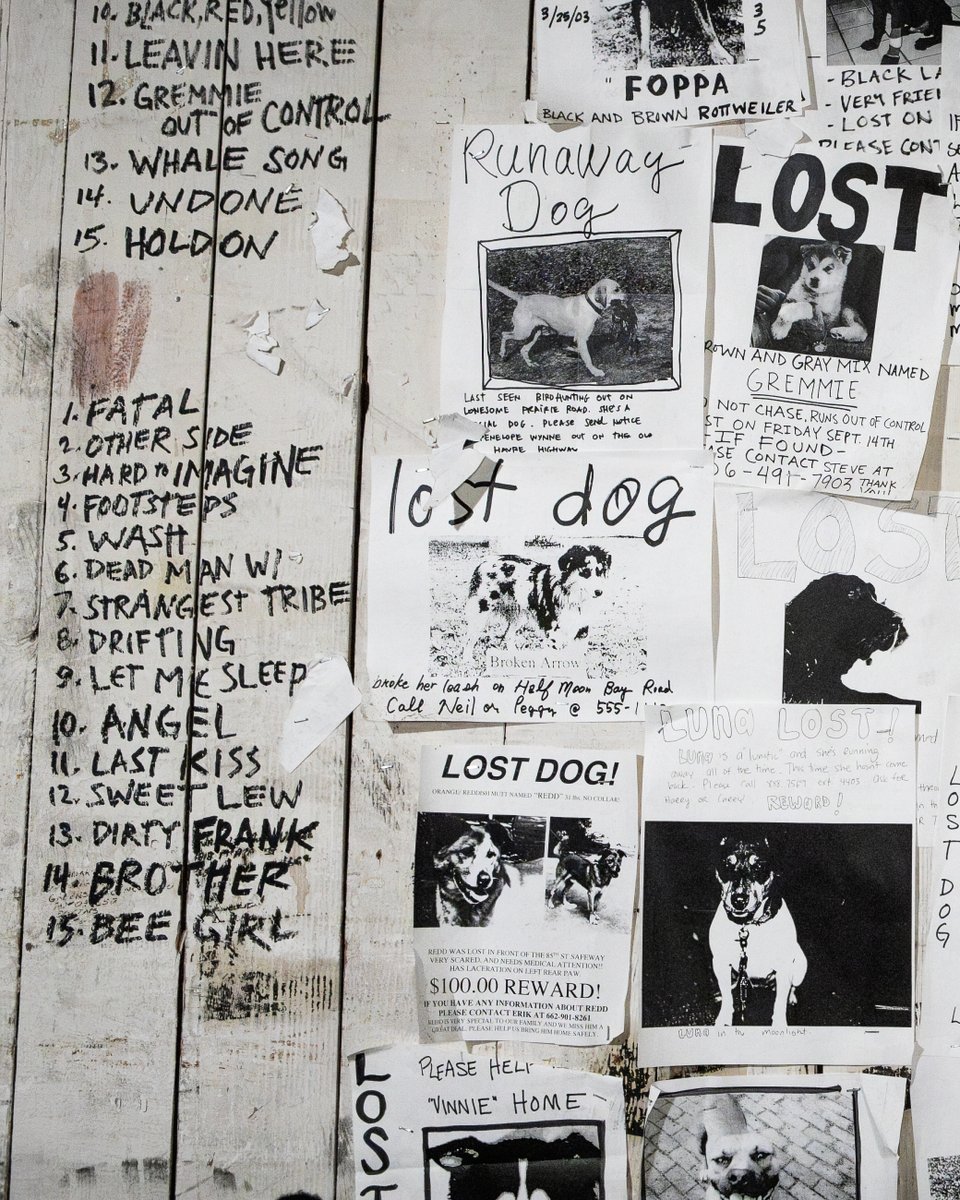 10. BLACK, RED, Yellow
11. LEAVIN HERE
12. GREMMIE
OUT OF CONTROL
13. WHALE SONG
14. UNDONE
15. HOLD ON
1. FATAL
2. OTHER SIDE
3. HARD to IMAGINE
4. FOOTSTEPS
5. WASH
6. DEAD MAN W/
7. STRANGEST TRIBE
8. DRIFTING
9. LET ME SLEEP
10. ANGEL
11. LAST KISS
12. SWEET LEW
13. DIRTY FRANK
14. BROTHER
15. BEE GIRL
3/25/03
3
5
"FOPPA
BLACK AND BROWN ROTTWEILER
- BLACK
- VERY
- LOST ON
PLEASE
Runaway
Dog
LAST SEEN BIRDHUNTING OUT ON
LONESOME PRAIRIE ROAD. SHE'S A
DOG. PLEASE SEND NOTICE
PENELOPE WYNNE OUT ON THE OLD
HAVRE HIGHWAY
LOST
AND GRAY MIX NAMED
GREMMIE
NOT CHASE, RUNS OUT OF CONTROL
ON FRIDAY SEPT. 14TH
-IF FOUND-
CONTACT STEVE AT
06-491-7903 THANK
YOU!
lost dog
Broken Arrow
broke her leash on Half Moon Bay Road
Call Neil or Peggy @ 555-
LOST
LOST DOG!
ORANGE/ REDDISH MUTT NAMED "REDD" 51 lbs. NO COLLAR!
REDD WAS LOST IN FRONT OF THE 85TH ST. SAFEWAY
VERY SCARED, AND NEEDS MEDICAL ATTENTION!!
HAS LACERATION ON LEFT REAR PAW.
$100.00 REWARD!
IF YOU HAVE ANY INFORMATION ABOUT REDD
PLEASE CONTACT ERIK AT 662-901-8261
REDD IS VERY SPECIAL TO OUR FAMILY AND WE MISS HIM A
GREAT DEAL. PLEASE HELP US BRING HIM HOME SAFELY.
LUNA LOST!
LUNA is a "lunatic" and she's running
away all of the time. This time she hasn't come
back. Please Call 555.7567 ext 4403. Ask for
Harry or Carey! REWARD!
LUNA in the moonlight.
LOST DOG
L
LOST
PLEASE HELP
"VINNIE" HOME